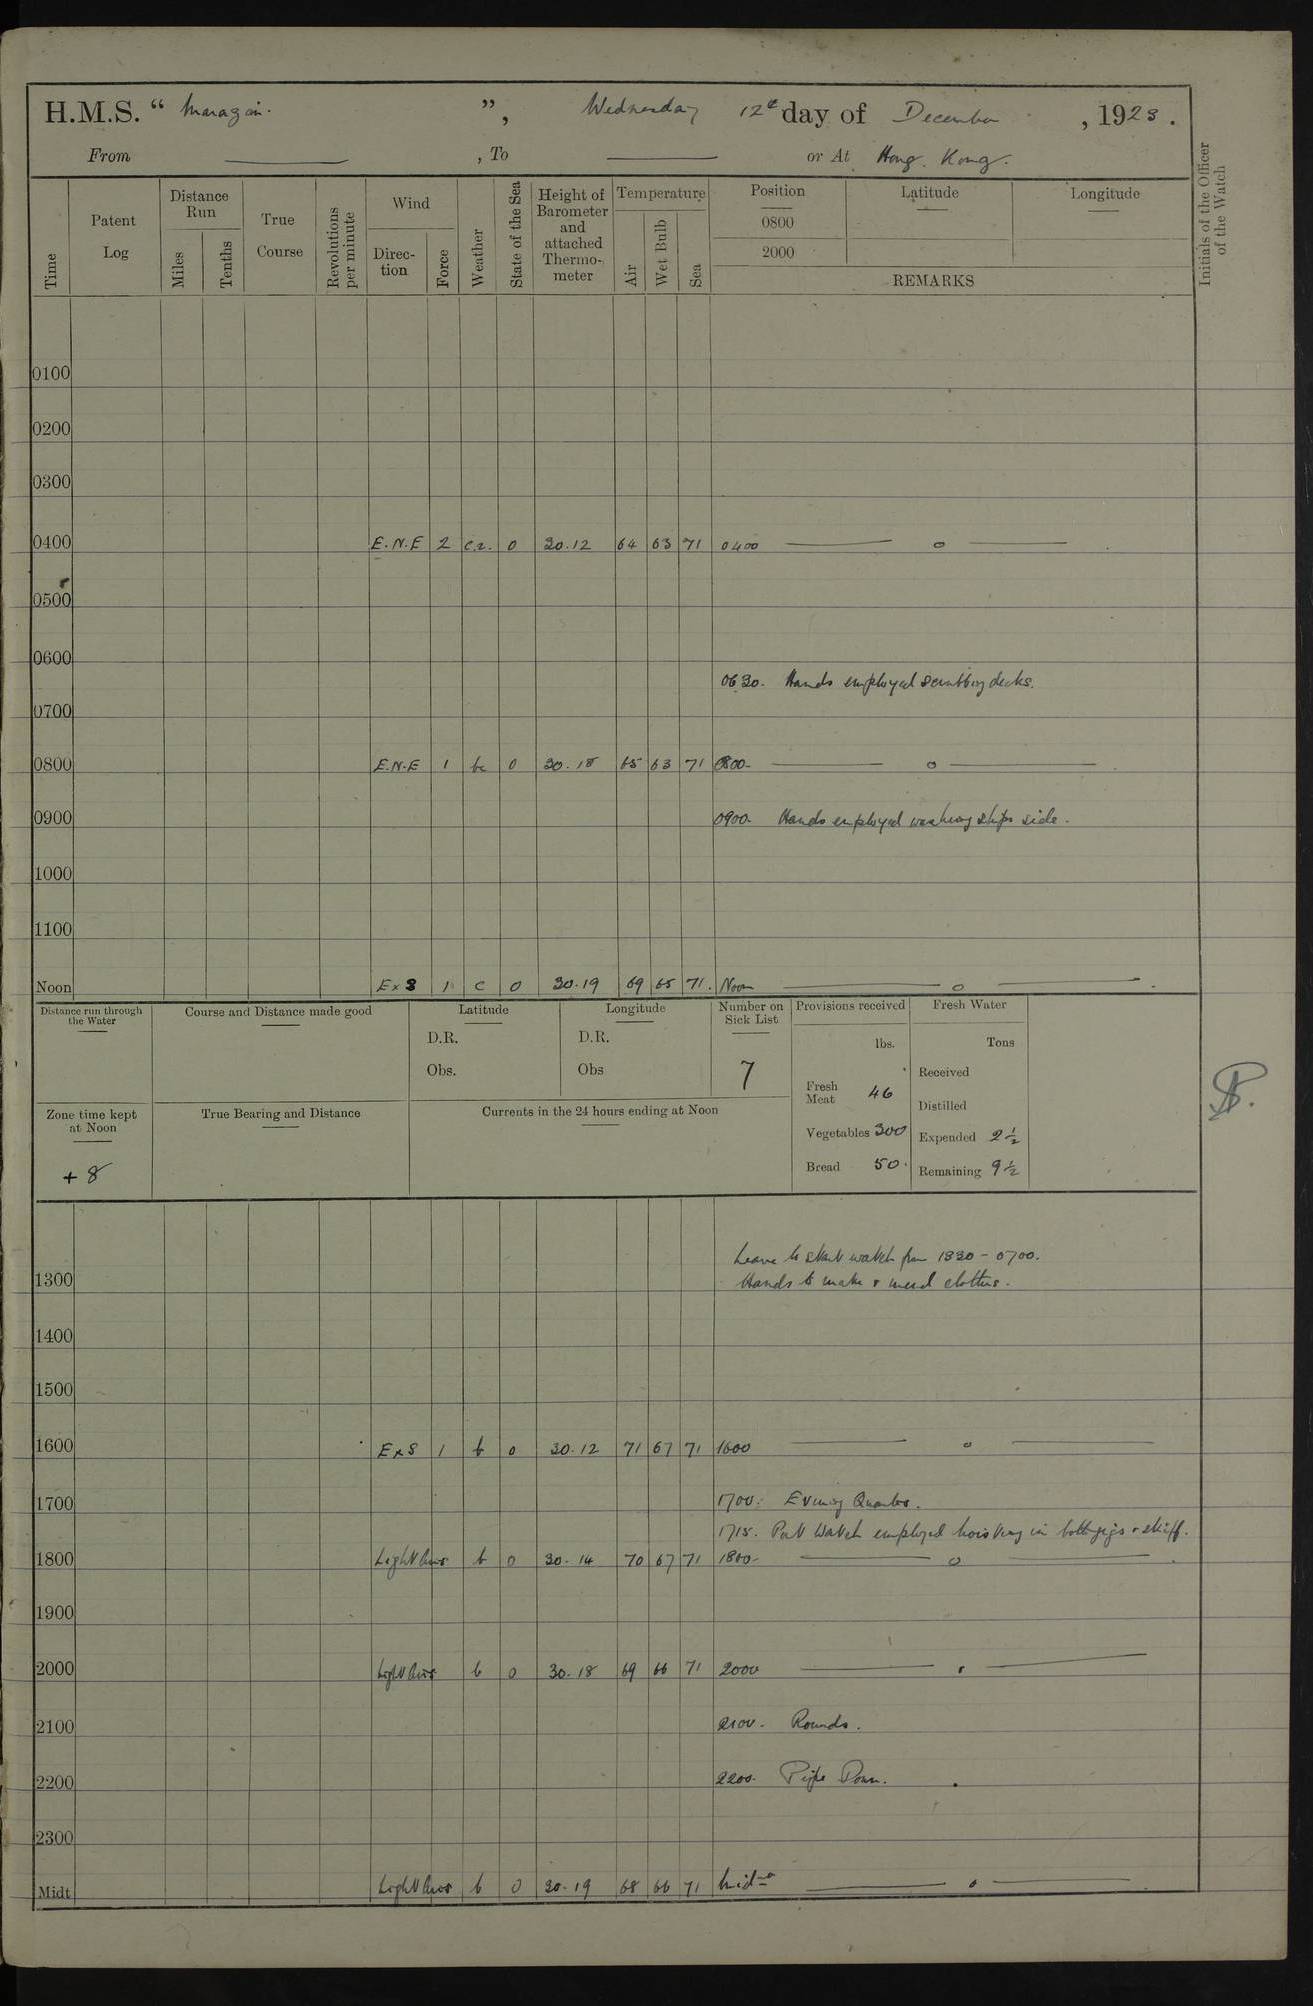 H.M.S. “ Marazion. ”, Wednesday 12th day of December , 1923.
From ——— , To ——— or At Hong Kong.
Time
Patent Log
Distance Run
Miles
Tenths
True Course
Revolutions per minute
Wind
Direc-tion
Force
Weather
State of the Sea
Height of Barometer and attached Thermo-meter
Temperature
Air
Wet Bulb
Sea
Position
0800
2000
Latitude
Longitude
REMARKS
Initials of the Officer of the Watch
0100
0200
0300
0400 E.N.E 2 0 30.12 64 63 71 0400 —— o ——
0500
0600
0630. Hands employed scrubbing decks.
0700
0800 E.N.E 1 bc 0 30.18 65 63 71 0800. —— o ——
0900 0900. Hands employed washing ships side.
1000
1100
Noon ExS 1 c 0 30.19 69 65 71. Noon —— o ——
Distance run through the Water
Course and Distance made good
Latitude
D.R.
Obs.
Longitude
D.R.
Obs
Number on Sick List
7
Provisions received
lbs.
Fresh Meat 46
Vegetables 300
Bread 50.
Fresh Water
Tons
Received
Distilled
Expended 2½
Remaining 9½
Zone time kept at Noon
+8
True Bearing and Distance
Currents in the 24 hours ending at Noon
Leave to watch from 1330 - 0700.
1300 Hands to make & mend clothes.
1400
1500
1600 ExS 1 b 0 30.12 71 67 71 1600 —— o ——
1700 1700. Evening Quarters.
1715. Port Watch employed hoisting in both gigs & skiff.
1800 Light Airs b 0 30.14 70 67 71 1800. —— o ——
1900
2000 Light Airs b 0 30.18 69 66 71 2000 —— ——
2100 2100. Rounds.
2200 2200. Pipe Down.
2300
Midt Light Airs b 0 30.19 68 66 71 Midt —— o ——